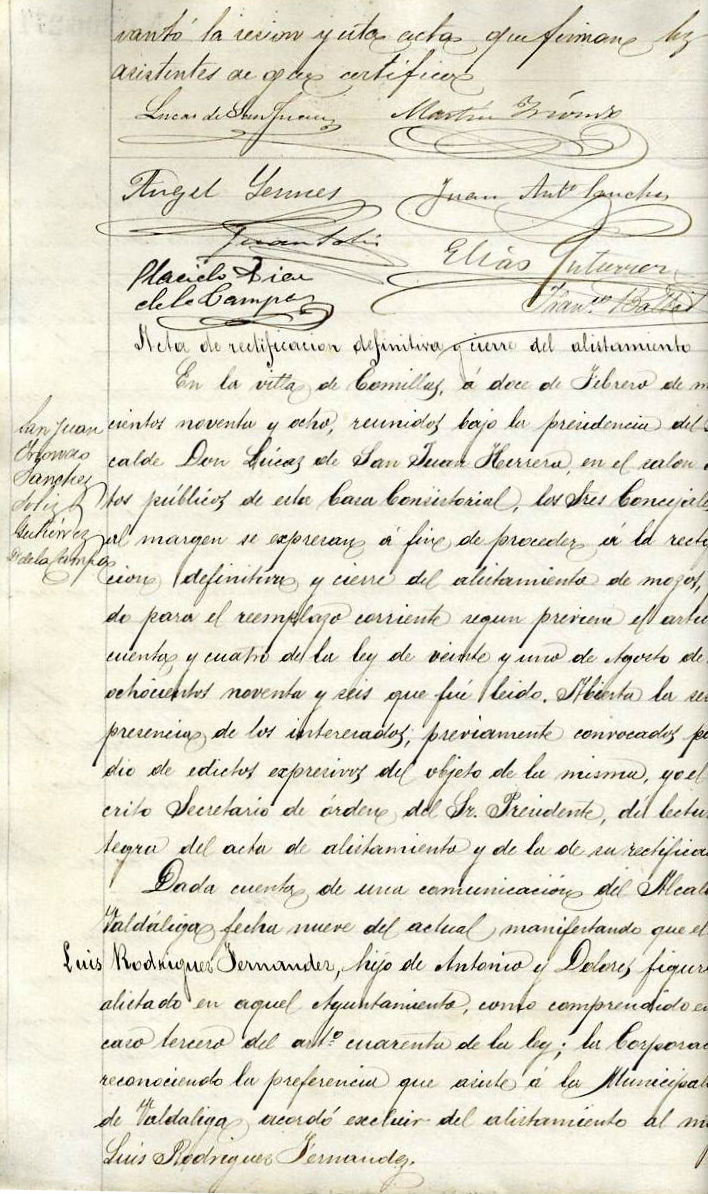 vantó la sesion y esta acta que firman los
asistentes de que certifico
Lucas de San Juan Martin
Angel Juan Antº Sanchez
Juan Soliz Elías Gutierrez
Placido Diez
de la Campa Franco
Acta de rectificacion definitiva y cierre del alistamiento
En la villa de Comillas, á doce de Febrero de m
San Juan
cientos noventa y ocho, reunidos bajo la presidencia del
calde Don Lúcas de San Juan Herrera, en el salon
Sanchez
tos públicos de esta Casa Consistorial, los Sres Concejale
Soliz
Gutiérrez
al margen se expresan á fin de proceder á la recti
D. de la Campa
cion definitiva y cierre del alistamiento de mozos,
do para el reemplazo corriente segun previene el artic
cuenta y cuatro de la ley de veinte y uno de Agosto de
ochocientos noventa y seis que fué leido. Abierta la ses
presencia de los interesados, previamente convocados po
dio de edictos expresivos del objeto de la misma, yo el
crito Secretario de órden del Sr. Presidente, dí lectu
tegra del acta de alistamiento y de la de su rectifica
Dada cuenta de una comunicación del Alcal
Valdáliga fecha nueve del actual manifestando que el
Luis Rodriguez Fernandez, hijo de Antonio y Dolores figur
alistado en aquel Ayuntamiento, como comprendido e
caso tercero del artº cuarenta de la ley; la Corporac
reconociendo la preferencia que asiste á la Municipal
de Valdaliga acordó excluir del alistamiento al m
Luis Rodriguez Fernandez.